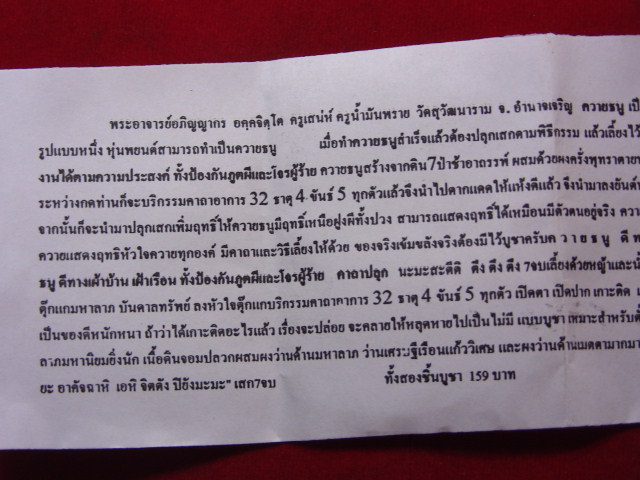 พระอาจารย์อภิญญากร อคฺคจิตฺโต ครูเสน่ห์ ครูน้ำมันพราย วัดสุวัฒนาราม จ. อำนาจเจริญ ควายธนู เป็
รูปแบบหนึ่ง หุ่นพยนต์สามารถทำเป็นควายธนู เมื่อทำควายธนูสำเร็จแล้วต้องปลุกเสกตามพิธีกรรม แล้วเลี้ยงไว้
งานได้ตามความประสงค์ ทั้งป้องกันภูตผีและโจรผู้ร้าย ควายธนูสร้างจากดิน 7 ป่าช้าอาถรรพ์ ผสมด้วยผงครั่งพุทราตาย
ระหว่างกดท่านก็จะบริกรรมคาถาอาการ 32 ธาตุ 4 ขันธ์ 5 ทุกตัวแล้วจึงนำไปตากแดดให้แห้งดีแล้ว จึงนำมาลงยันต์
จากนั้นก็จะนำมาปลุกเสกเพิ่มฤทธิ์ให้ควายธนูมีฤทธิ์เหนือฝูงผีทั้งปวง สามารถแสดงฤทธิ์ได้เหมือนมีตัวตนอยู่จริง ควา
ควายแสดงฤทธิหัวใจควายทุกองค์ มีคาถาและวิธีเลี้ยงให้ด้วย ของจริงเข้มขลังจริงต้องมีไว้บูชาครับค ว า ย ธ นู ดี ท
ธนู ดีทางเฝ้าบ้าน เฝ้าเรือน ทั้งป้องกันภูตผีและโจรผู้ร้าย คาถาปลุก นะมะสะตีติ ดึง ดึง ดึง 7จบเลี้ยงด้วยหญ้าและน้ำ
ตุ๊กแกมหาลาภ บันดาลทรัพย์ ลงหัวใจตุ๊กแกบริกรรมคาถาอาการ 32 ธาตุ 4 ขันธ์ 5 ทุกตัว เปิดตา เปิดปาก เกาะติด เ
เป็นของดีหนักหนา ถ้าว่าได้เกาะติดอะไรแล้ว เรื่องจะปล่อย จะคลายให้หลุดหายไปเป็นไม่มี แบบบูชา เหมาะสำหรับตั้
ลาภมหานิยมยิ่งนัก เนื้อดินจอมปลวกผสมผงว่านด้านมหาลาภ ว่านเศรษฐีเรือนแก้ววิเศษ และผงว่านด้านเมตตามากมา
ยะ อาคัจฉาหิ เอหิ จิตตัง ปิยังมะมะ" เสก7จบ ทั้งสองชิ้นบูชา 159 บาท